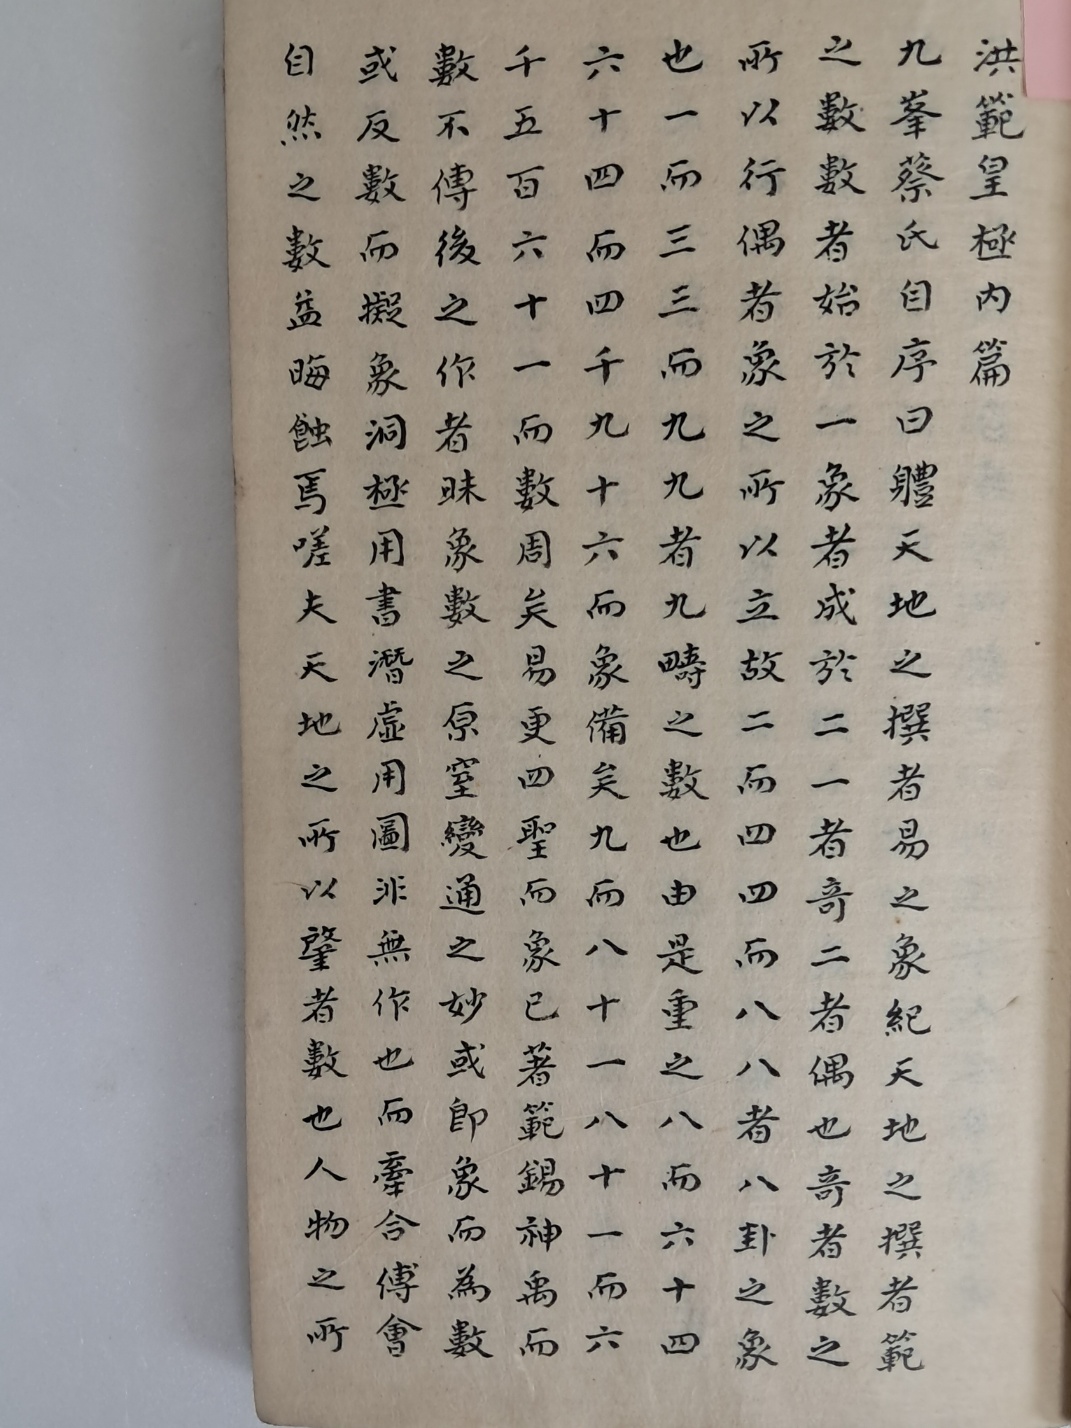 洪範皇極內篇
九峯蔡氏自序曰體天地之撰者易之象紀天地之撰者範
之數數者始於一象者成於二一者奇二者偶也奇者數之
所以行偶者象之所以立故二而四四而八八者八卦之象
也一而三三而九九者九疇之數也由是重之八而六十四
六十四而四千九十六而象備矣九而八十一八十一而六
千五百六十一而數周矣易更四聖而象已著範錫神禹而
數不傳後之作者昧象數之原窒變通之妙或即象而為數
或反數而擬象洞極用書潛虛用圖非無作也而牽合傅會
自然之數益晦蝕焉嗟夫天地之所以肇者數也人物之所